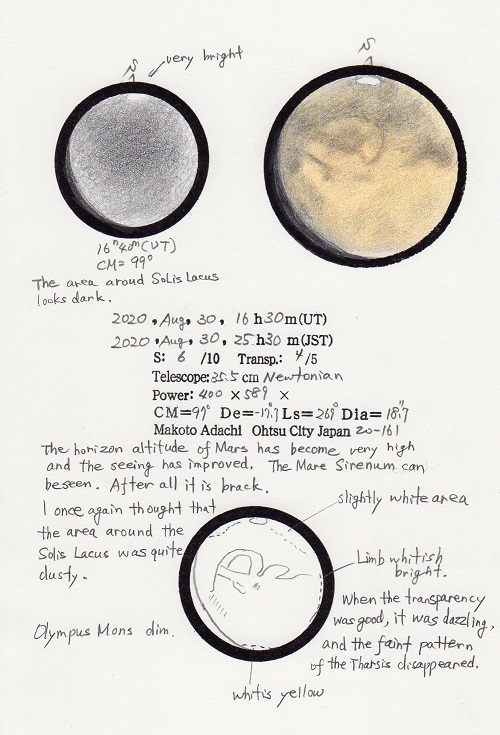 very bright
16h40m(UT)
CM=99°
The area aroud Solis Lacus
looks dark.
2020, Aug, 30, 16h30m(UT)
2020, Aug, 30, 25h30m(JST)
S: 6 /10 Transp.: 4/5
Telescope: 35.5 cm Newtonian
Power: 400 × 589 ×
CM=97° De=-17.°7 Ls=269° Dia=18."7
Makoto Adachi Ohtsu City Japan 20-161
The horizon altitude of Mars has become very high
and the seeing has improved. The Mare Sirenum can
beseen. After all it is brack.
I once again thought that
the area around the
Solis Lacus was quite
dusty.
slightly white area
Limb whitish
bright.
When the transparency
was good, it was dazzling,
and the faint pattern
of the Tharsis disappeared.
Olympus Mons dim.
whitis yellow